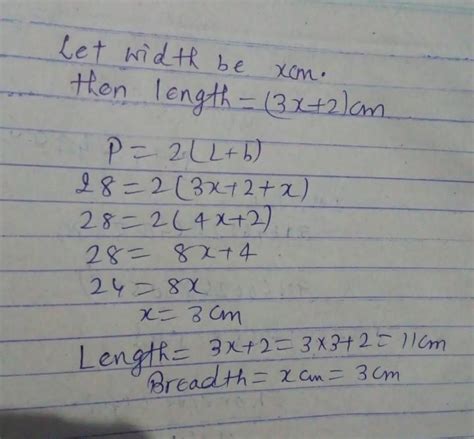 Let width be xcm.
then length = (3x+2)cm
P = 2(L+b)
28 = 2(3x+2+x)
28 = 2(4x+2)
28 = 8x+4
24 = 8x
x = 3cm
Length = 3x+2 = 3×3+2 = 11cm
Breadth = xcm = 3cm